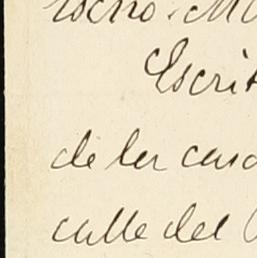 Escrit
de la casa
calle del